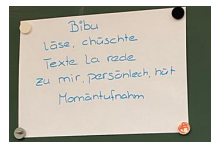 Bibu
Läse, chüschte
Texte la rede
zu mir, persönlech, hüt
Momäntufnahm